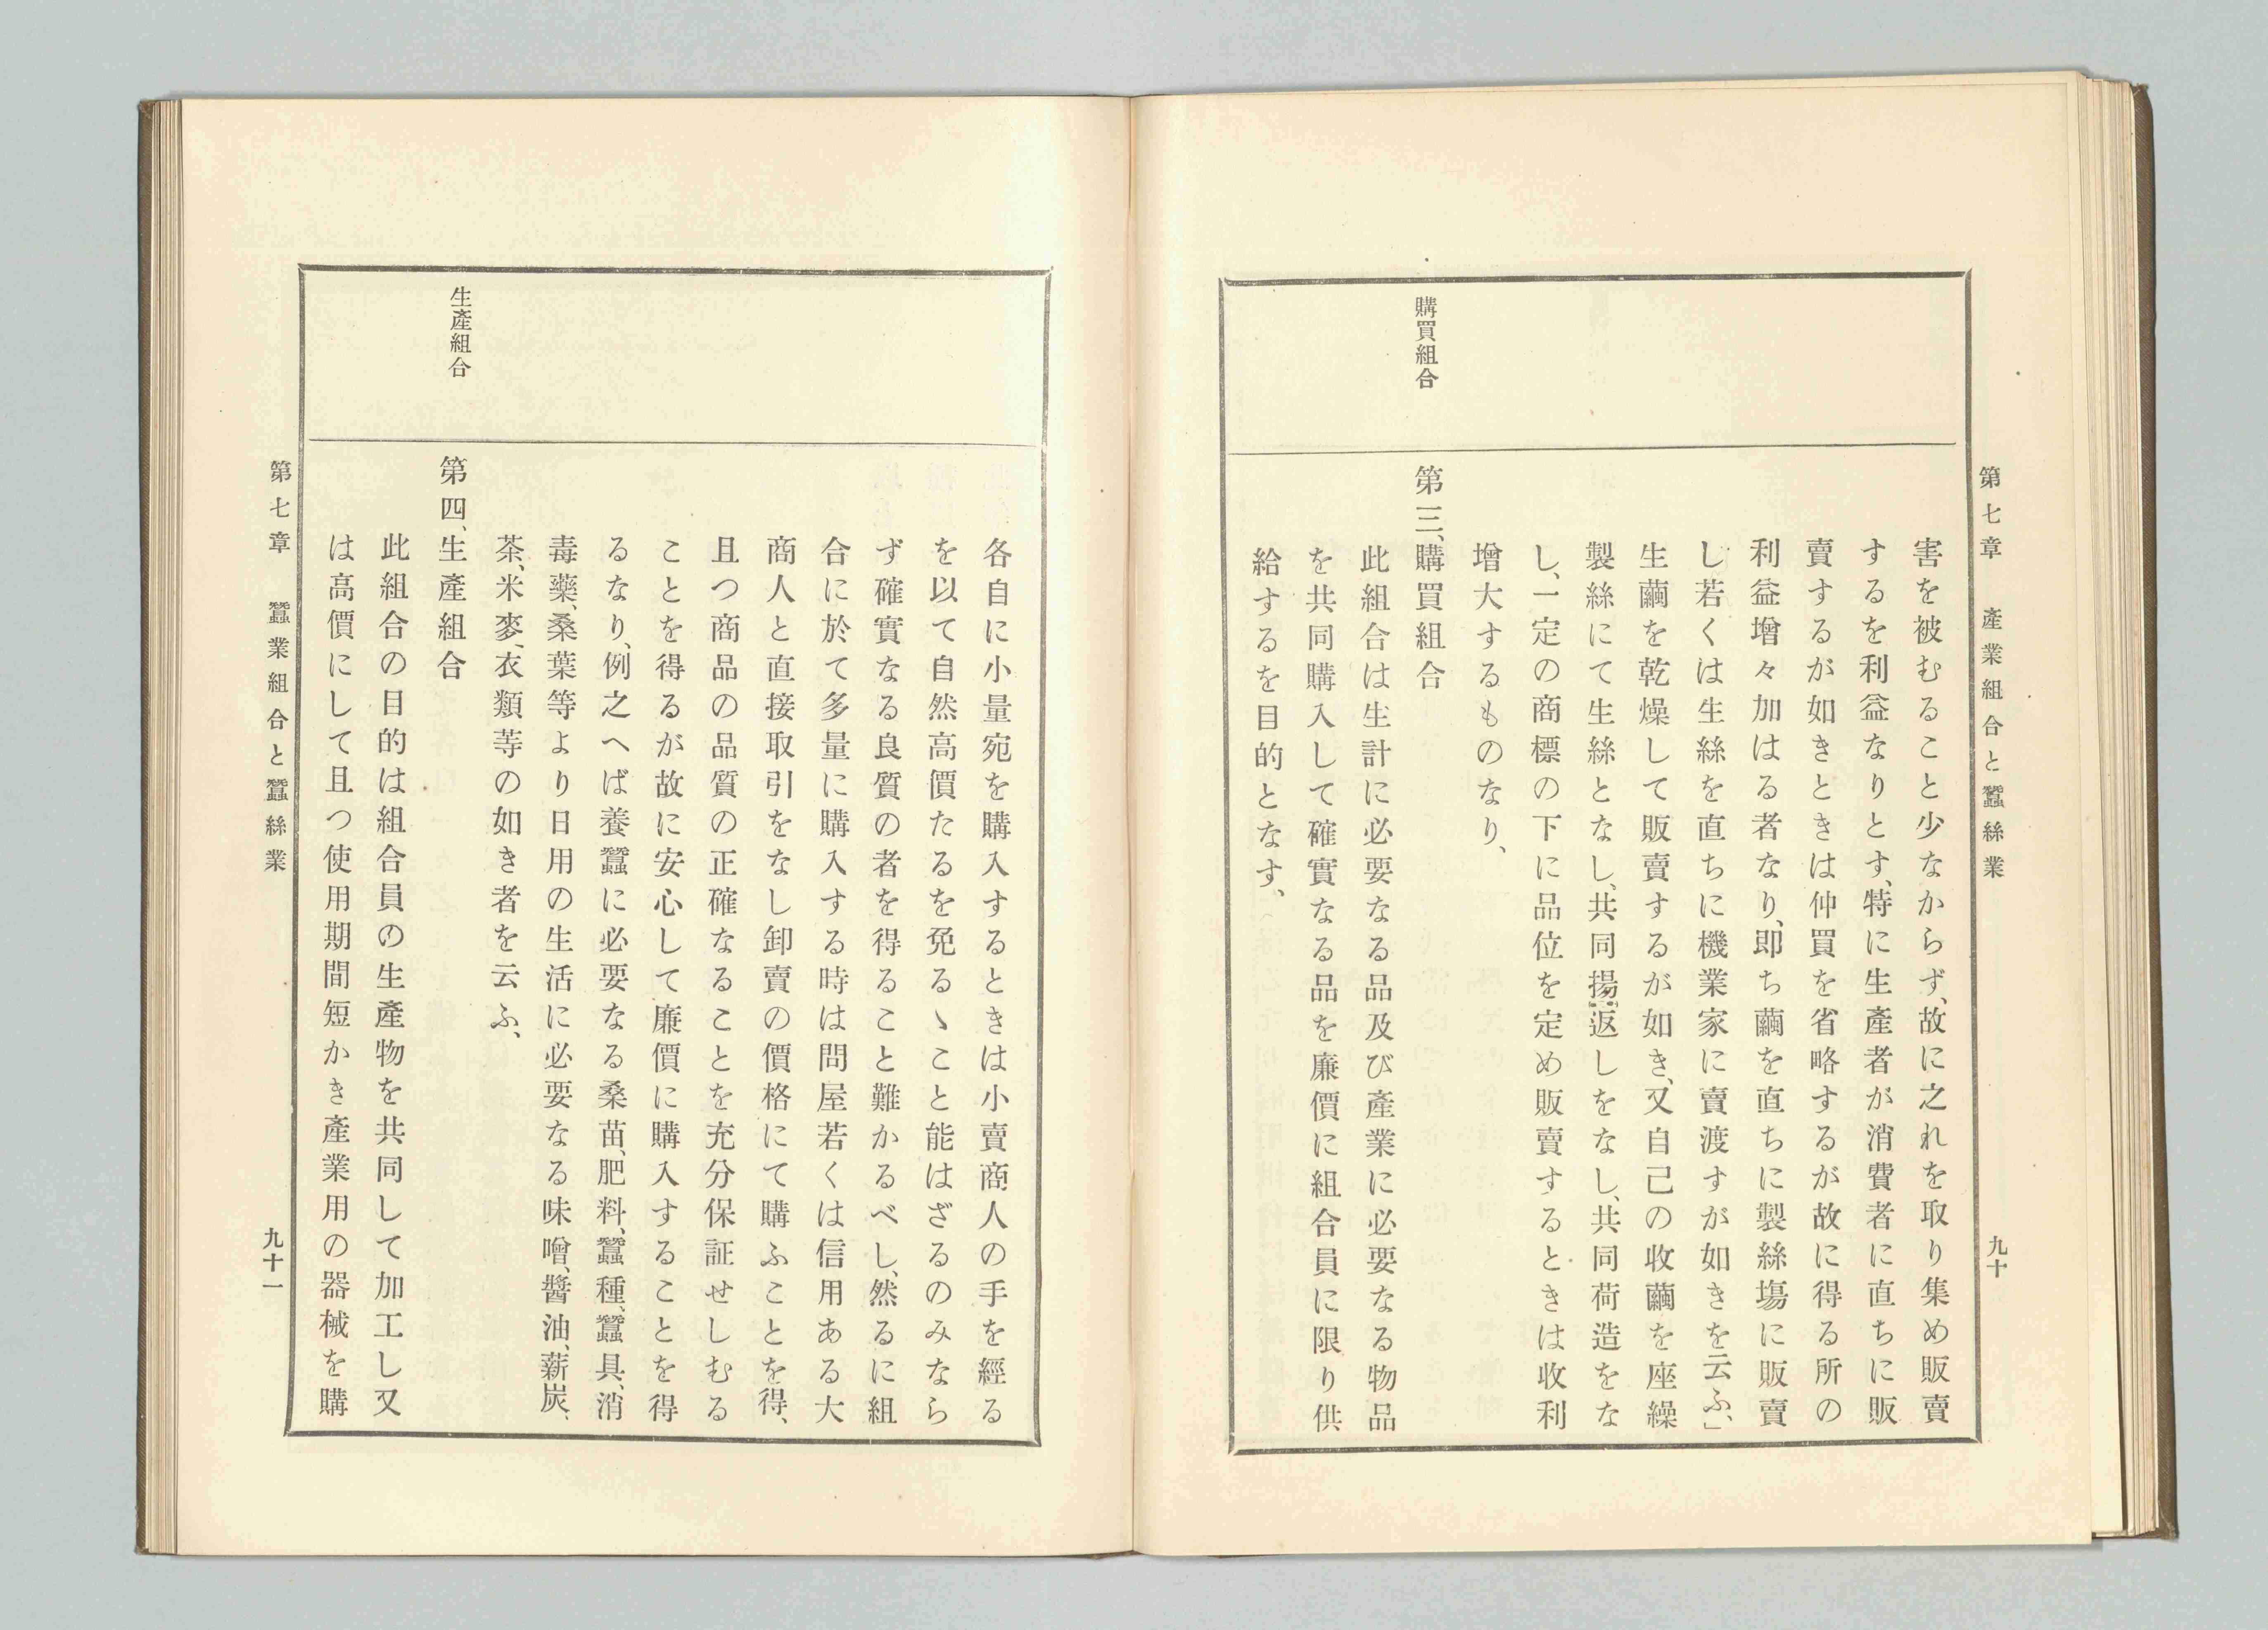 第七章　產業組合と蠶絲業　九十
購買組合
害を被むること少なからず、故に之れを取り集め販賣
するを利益なりとす、特に生產者が消費者に直ちに販
賣するが如きときは仲買を省略するが故に得る所の
利益增々加はる者なり、卽ち繭を直ちに製絲塲に販賣
し若くは生絲を直ちに機業家に賣渡すが如きを云ふ、」
生繭を乾燥して販賣するが如き、又自己の收繭を座繰
製絲にて生絲となし、共同揚返しをなし、共同荷造をな
し、一定の商標の下に品位を定め販賣するときは收利
增大するものなり、
第三、購買組合
此組合は生計に必要なる品及び產業に必要なる物品
を共同購入して確實なる品を廉價に組合員に限り供
給するを目的となす、
生產組合
各自に小量宛を購入するときは小賣商人の手を經る
を以て自然高價たるを免るゝこと能はざるのみなら
ず確實なる良質の者を得ること難かるべし、然るに組
合に於て多量に購入する時は問屋若くは信用ある大
商人と直接取引をなし卸賣の價格にて購ふことを得、
且つ商品の品質の正確なることを充分保証せしむる
ことを得るが故に安心して廉價に購入することを得
るなり、例之へば養蠶に必要なる桑苗、肥料、蠶種、蠶具、消
毒藥、桑葉等より日用の生活に必要なる味噌、醬油、薪炭、
茶、米麥、衣類等の如き者を云ふ、
第四、生產組合
此組合の目的は組合員の生產物を共同して加工し又
は高價にして且つ使用期間短かき產業用の器械を購
第七章　蠶業組合と蠶絲業　九十一